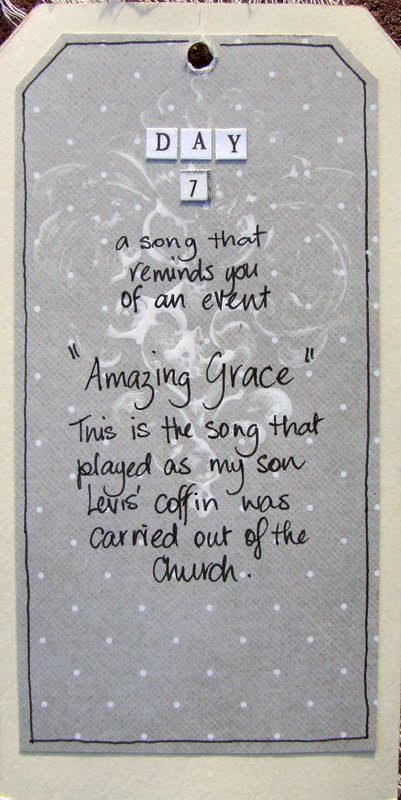 DAY
7
a song that
reminds you
of an event
"Amazing Grace"
This is the song that
played as my son
Levis' coffin was
carried out of the
Church.